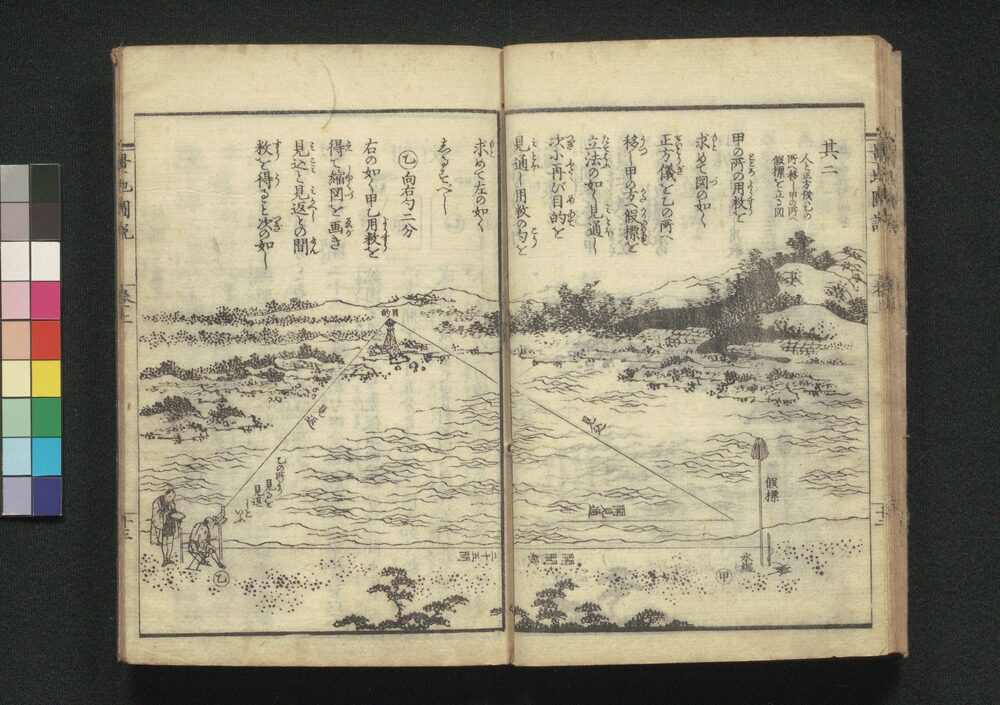 其二
人と正方儀を乙の
所へ移し甲の所へ
假標を立る図
甲の所の用数を
求めて図の如く
正方儀を乙の所へ
移し甲の方へ假標を
立法の如く見通し
次小再び目的を
見通し用数の勺を
求めて左の如く
志るすべし
乙 向右勺二分
右の如く甲乙用数を
得て縮図を画き
見込と見返との間
数を得ること次の如し
目的
見込
見返
乙の所より
見るを
見返
といふ
間見通
假標
水縄
甲
開間数
二十五間
乙
量地圖説